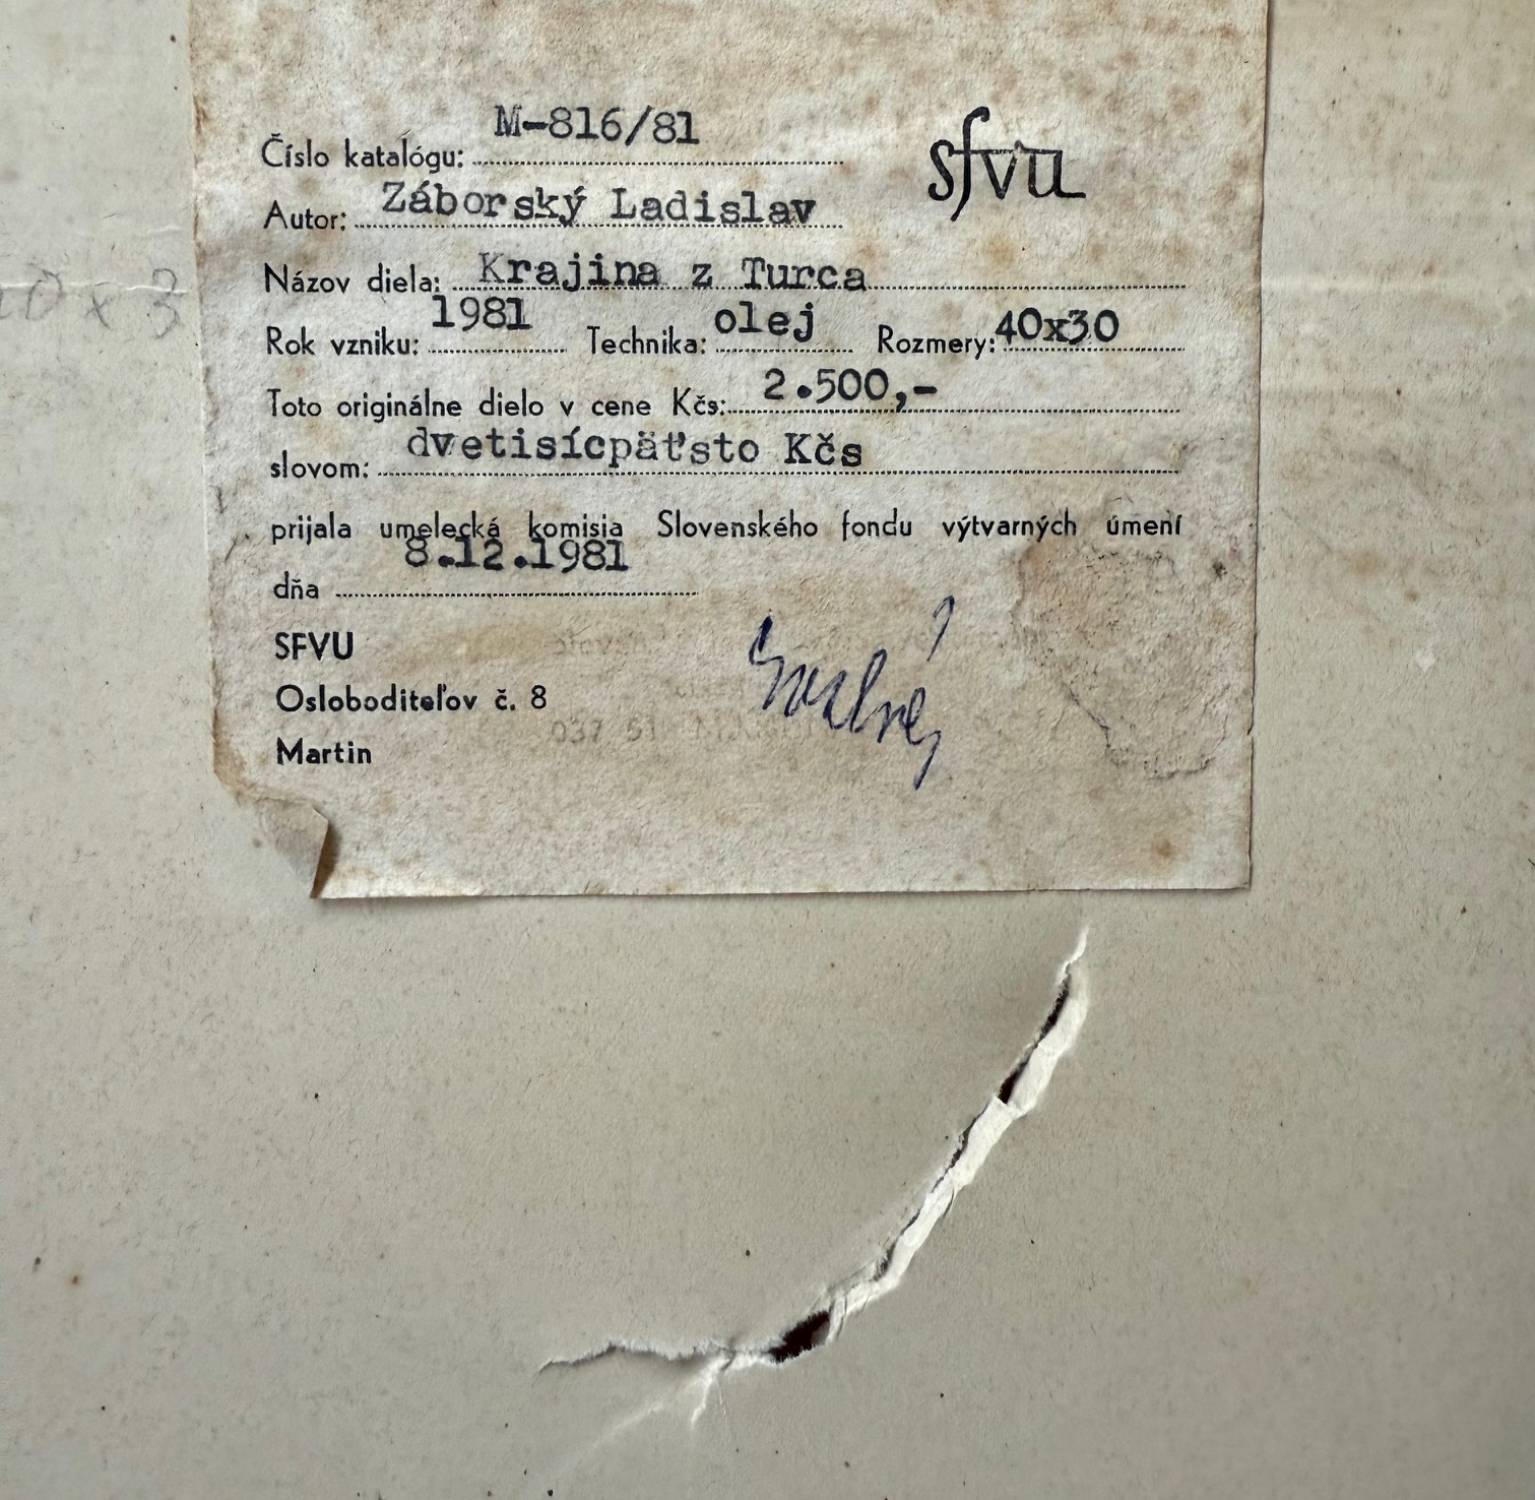 M-816/81
Číslo katalógu:
sfvu
Autor: Záborský Ladislav
Názov diela: Krajina z Turca
Rok vzniku: 1981 Technika: olej Rozmery: 40x30
Toto originálne dielo v cene Kčs: 2.500,-
slovom: dvetisícpäťsto Kčs
prijala umelecká komisia Slovenského fondu výtvarných úmení
dňa 8.12.1981
SFVU
Osloboditeľov č. 8
Martin